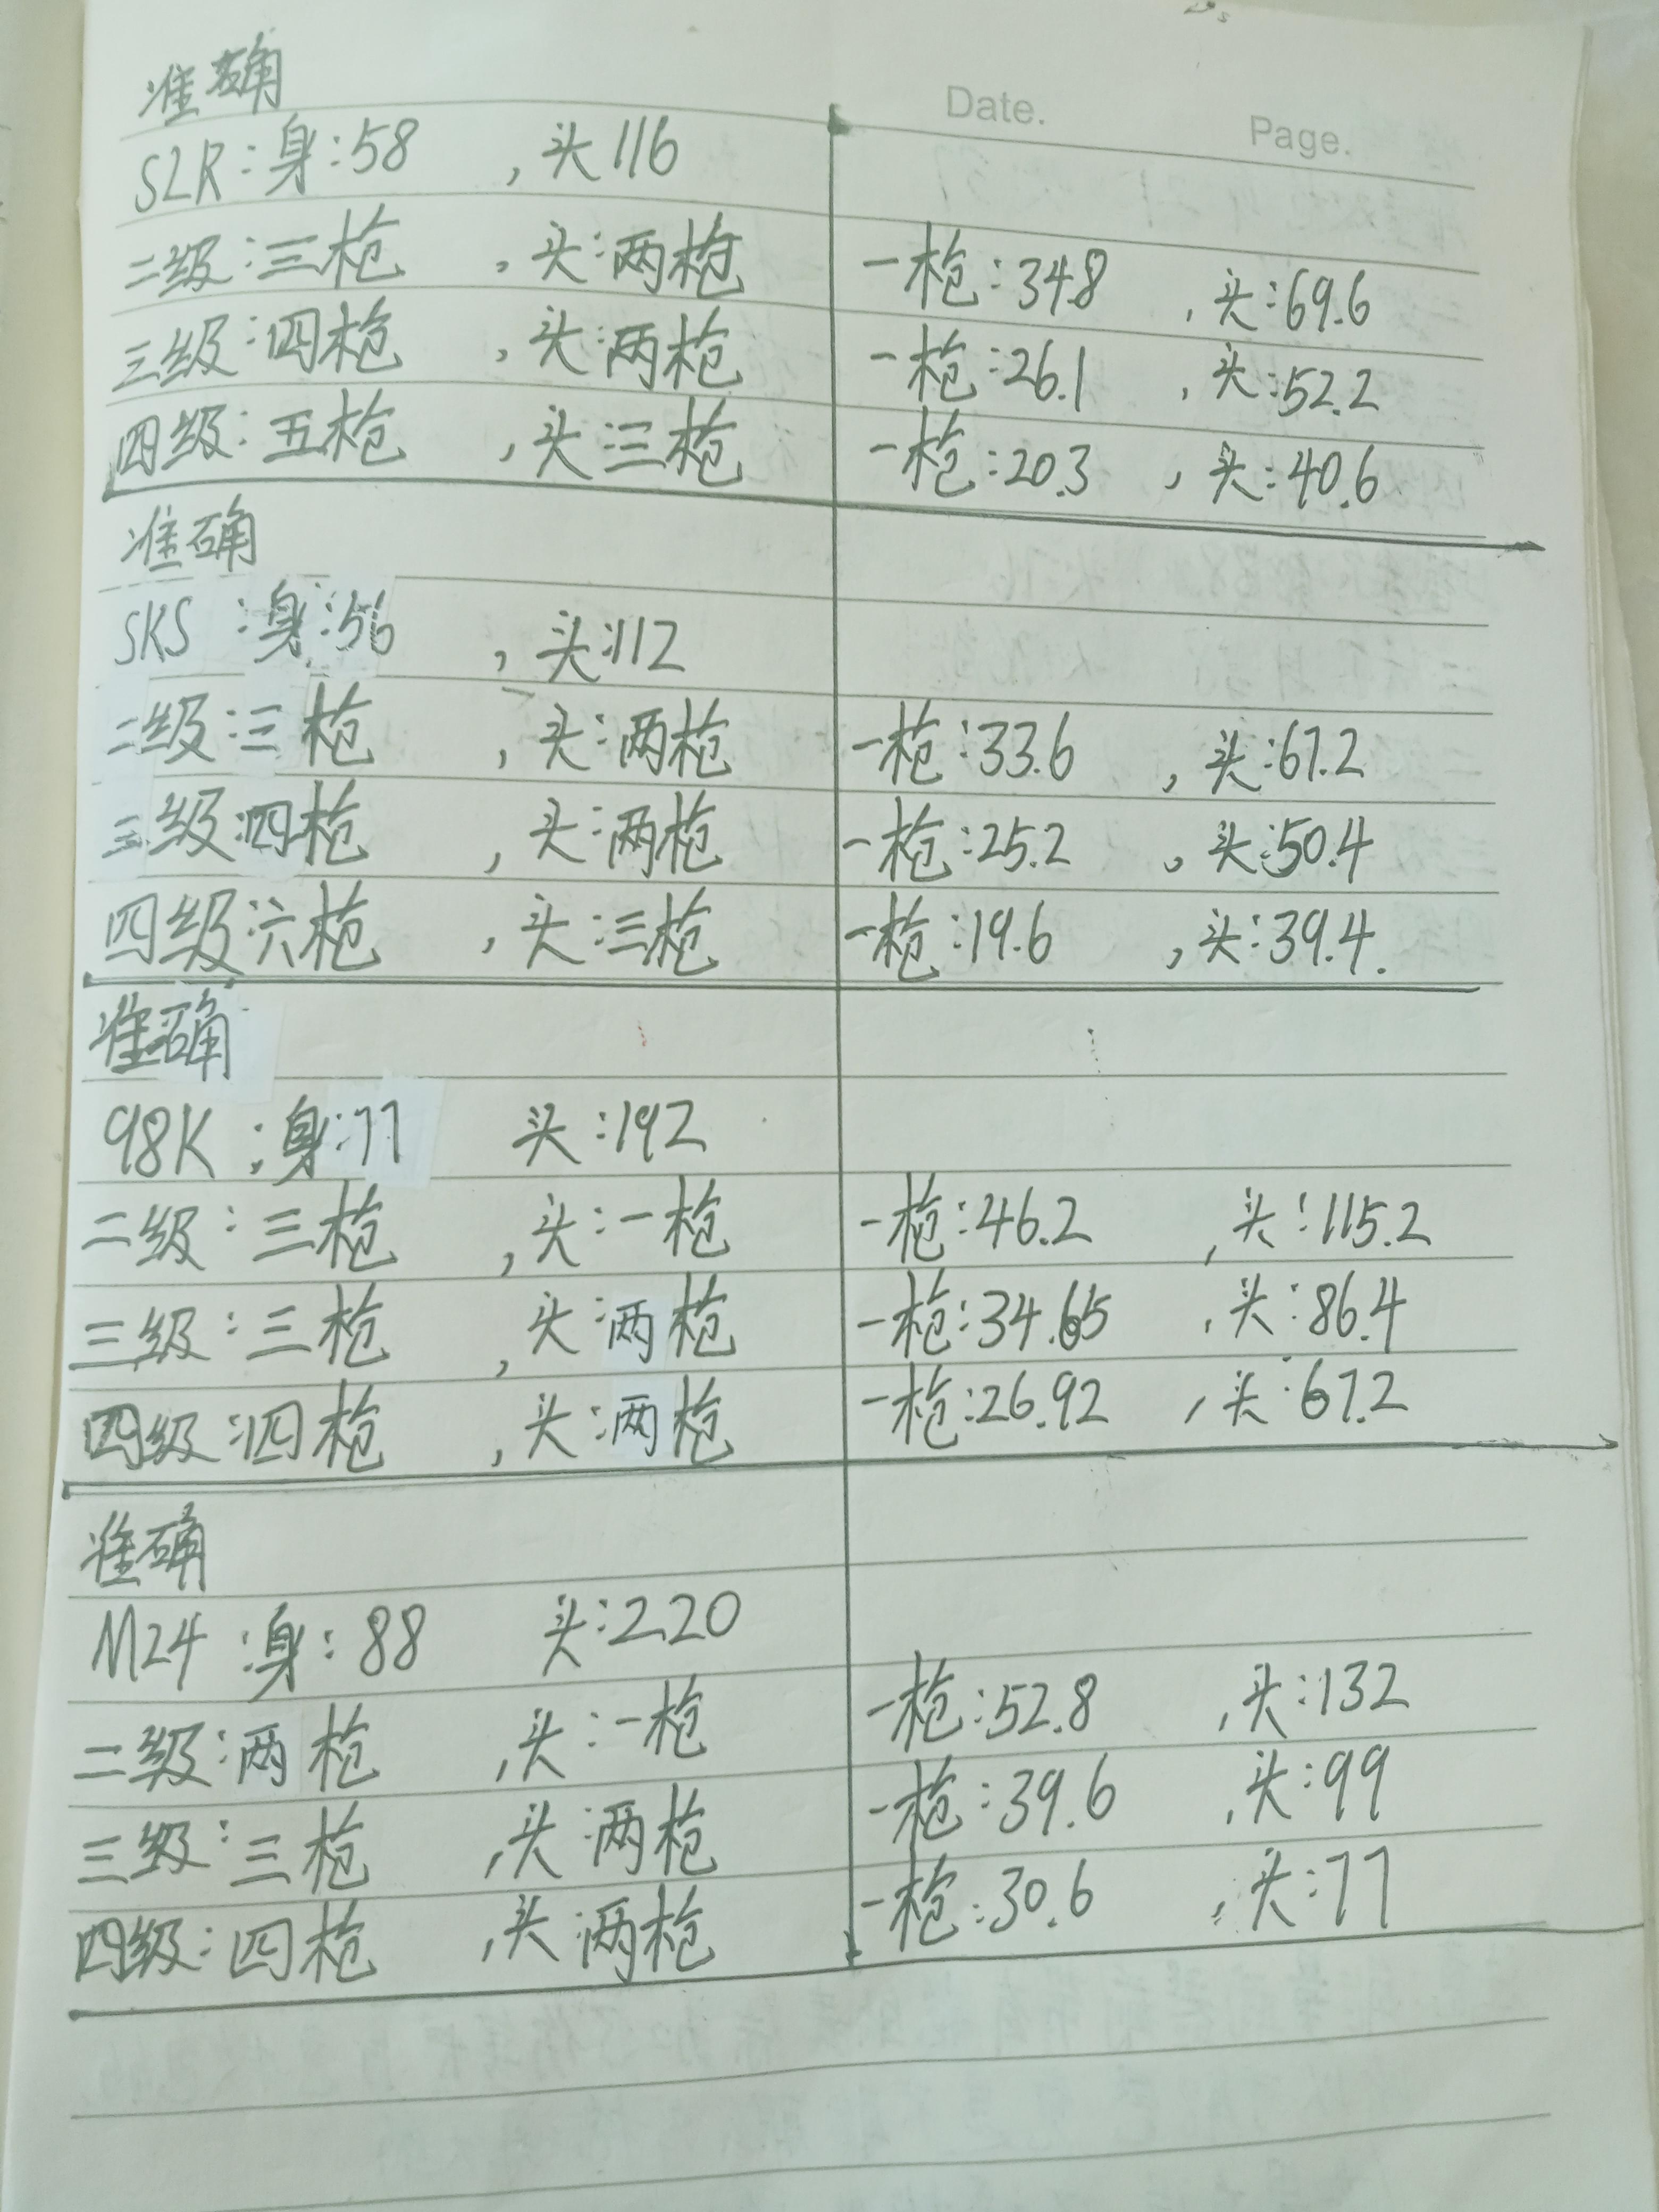 准确
Date. Page.
SLR:身:58 ,头116
二级:三枪 ,头:两枪 一枪:34.8 ,头:69.6
三级:四枪 ,头:两枪 一枪:26.1 ,头:52.2
四级:五枪 ,头:三枪 一枪:20.3 ,头:40.6
准确
SKS:身:56 ,头:112
二级:三枪 ,头:两枪 一枪:33.6 ,头:67.2
三级:四枪 ,头:两枪 一枪:25.2 ,头:50.4
四级:六枪 ,头:三枪 一枪:19.6 ,头:39.4.
准确
98K:身:77 头:192
二级:三枪 ,头:一枪 一枪:46.2 ,头:115.2
三级:三枪 ,头:两枪 一枪:34.65 ,头:86.4
四级:四枪 ,头:两枪 一枪:26.92 ,头:67.2
准确
M24:身:88 头:220
二级:两枪 ,头:一枪 一枪:52.8 ,头:132
三级:三枪 ,头:两枪 一枪:39.6 ,头:99
四级:四枪 ,头:两枪 一枪:30.6 ,头:77